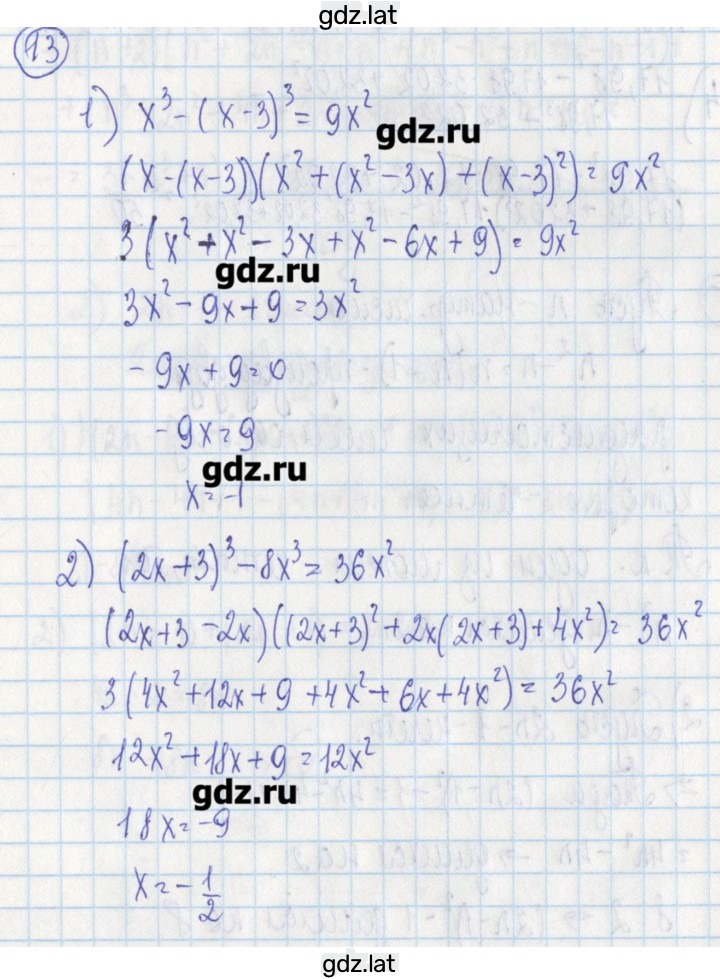 gdz.lat
13
1) x³ - (x-3)³ = 9x²
gdz.ru
(x-(x-3))(x² + (x² - 3x) + (x-3)²) = 9x²
3(x² + x² - 3x + x² - 6x + 9) = 9x²
gdz.ru
3x² - 9x + 9 = 3x²
-9x + 9 = 0
-9x = 9
gdz.ru
x = -1
2) (2x+3)³ - 8x³ = 36x²
(2x+3 - 2x)((2x+3)² + 2x(2x+3) + 4x²) = 36x²
3(4x² + 12x + 9 + 4x² + 6x + 4x²) = 36x²
12x² + 18x + 9 = 12x²
gdz.ru
18x = -9
x = -1/2
gdz.lat